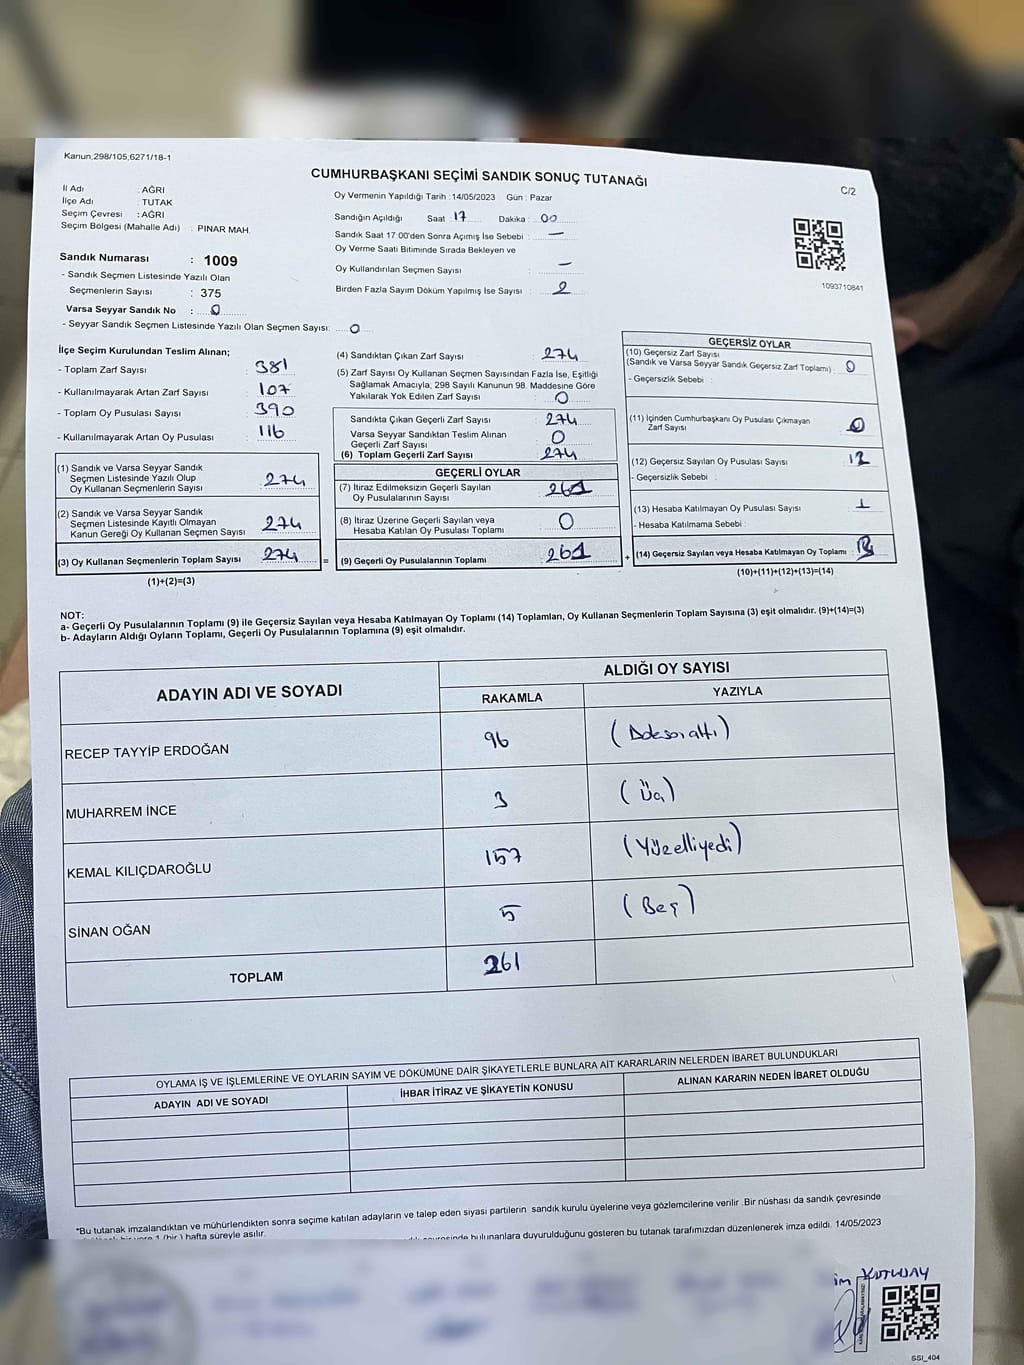 Kanun;298/105,6271/18-1
CUMHURBAŞKANI SEÇİMİ SANDIK SONUÇ TUTANAĞI
C/2
İl Adı : AĞRI
İlçe Adı : TUTAK
Seçim Çevresi : AĞRI
Seçim Bölgesi (Mahalle Adı) : PINAR MAH.
Sandık Numarası : 1009
- Sandık Seçmen Listesinde Yazılı Olan
Seçmenlerin Sayısı : 375
Varsa Seyyar Sandık No : 0
- Seyyar Sandık Seçmen Listesinde Yazılı Olan Seçmen Sayısı: 0
Oy Vermenin Yapıldığı Tarih : 14/05/2023 Gün : Pazar
Sandığın Açıldığı Saat : 17 Dakika : 00
Sandık Saat 17 00'den Sonra Açımış İse Sebebi : —
Oy Verme Saati Bitiminde Sırada Bekleyen ve
Oy Kullandırılan Seçmen Sayısı : —
Birden Fazla Sayım Döküm Yapılmış İse Sayısı : 2
1093710841
İlçe Seçim Kurulundan Teslim Alınan;
- Toplam Zarf Sayısı : 381
- Kullanılmayarak Artan Zarf Sayısı : 107
- Toplam Oy Pusulası Sayısı : 390
- Kullanılmayarak Artan Oy Pusulası : 116
(1) Sandık ve Varsa Seyyar Sandık
Seçmen Listesinde Yazılı Olup
Oy Kullanan Seçmenlerin Sayısı : 274
(2) Sandık ve Varsa Seyyar Sandık
Seçmen Listesinde Kayıtlı Olmayan
Kanun Gereği Oy Kullanan Seçmen Sayısı : 274
(3) Oy Kullanan Seçmenlerin Toplam Sayısı : 274
(1)+(2)=(3)
(4) Sandıktan Çıkan Zarf Sayısı : 274
(5) Zarf Sayısı Oy Kullanan Seçmen Sayısından Fazla İse, Eşitliği
Sağlamak Amacıyla, 298 Sayılı Kanunun 98. Maddesine Göre
Yakılarak Yok Edilen Zarf Sayısı : 0
Sandıkta Çıkan Geçerli Zarf Sayısı : 274
Varsa Seyyar Sandıktan Teslim Alınan
Geçerli Zarf Sayısı : 0
(6) Toplam Geçerli Zarf Sayısı : 274
GEÇERLİ OYLAR
(7) İtiraz Edilmeksizin Geçerli Sayılan
Oy Pusulalarının Sayısı : 261
(8) İtiraz Üzerine Geçerli Sayılan veya
Hesaba Katılan Oy Pusulası Toplamı : 0
= (9) Geçerli Oy Pusulalarının Toplamı : 261 +
GEÇERSİZ OYLAR
(10) Geçersiz Zarf Sayısı
(Sandık ve Varsa Seyyar Sandık Geçersiz Zarf Toplamı) : 0
- Geçersizlik Sebebi :
(11) İçinden Cumhurbaşkanı Oy Pusulası Çıkmayan
Zarf Sayısı : 0
(12) Geçersiz Sayılan Oy Pusulası Sayısı : 12
- Geçersizlik Sebebi :
(13) Hesaba Katılmayan Oy Pusulası Sayısı : 1
- Hesaba Katılmama Sebebi :
(14) Geçersiz Sayılan veya Hesaba Katılmayan Oy Toplamı :
(10)+(11)+(12)+(13)=(14)
NOT:
a- Geçerli Oy Pusulalarının Toplamı (9) ile Geçersiz Sayılan veya Hesaba Katılmayan Oy Toplamı (14) Toplamları, Oy Kullanan Seçmenlerin Toplam Sayısına (3) eşit olmalıdır. (9)+(14)=(3)
b- Adayların Aldığı Oyların Toplamı, Geçerli Oy Pusulalarının Toplamına (9) eşit olmalıdır.
ADAYIN ADI VE SOYADI
ALDIĞI OY SAYISI
RAKAMLA YAZIYLA
RECEP TAYYİP ERDOĞAN 96 (Doksanaltı)
MUHARREM İNCE 3 (Üç)
KEMAL KILIÇDAROĞLU 157 (Yüzelliyedi)
SİNAN OĞAN 5 (Beş)
TOPLAM 261
OYLAMA İŞ VE İŞLEMLERİNE VE OYLARIN SAYIM VE DÖKÜMÜNE DAİR ŞİKAYETLERLE BUNLARA AİT KARARLARIN NELERDEN İBARET BULUNDUKLARI
ADAYIN ADI VE SOYADI İHBAR İTİRAZ VE ŞİKAYETİN KONUSU ALINAN KARARIN NEDEN İBARET OLDUĞU
*Bu tutanak imzalandıktan ve mühürlendikten sonra seçime katılan adayların ve talep eden siyasi partilerin sandık kurulu üyelerine veya gözlemcilerine verilir .Bir nüshası da sandık çevresinde
1 (bir ) hafta süreyle asılır.
bulunanlara duyurulduğunu gösteren bu tutanak tarafımızdan düzenlenerek imza edildi. 14/05/2023
SSI_404